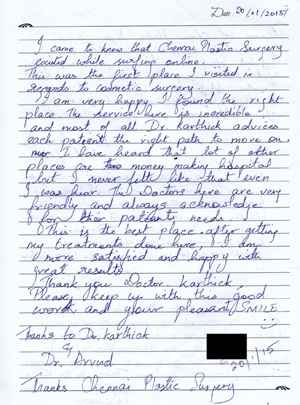 Date: 20/01/2015
I came to know that Chennai Plastic Surgery
existed while surfing online.
This was the first place I visited in
regards to cosmetic surgery.
I am very happy I found the right
place. The service here is incredible
and most of all Dr. Karthick advices
each patient the right path to move on.
I have heard that lot of other
places are money making hospital
but I never felt like that even
I was hear. The Doctors here are very
friendly and always acknowledge
for their patients needs.
This is the best place. after getting
my treatments done here, I am
more satisfied and happy with
great results.
Thank you Doctor Karthick,
Please keep up with this good
work and your pleasant SMILE
Thanks to Dr. Karthick
&
Dr. Arvind
20/1/15
Thanks Chennai Plastic Surgery